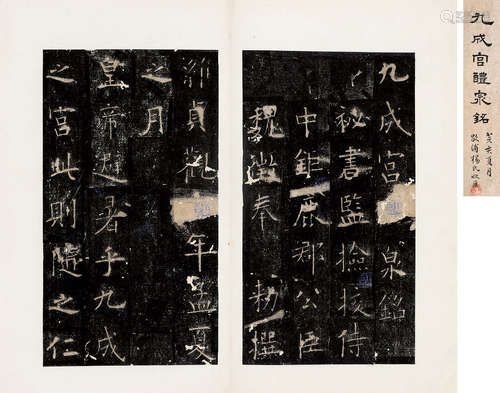 九成宮泉銘
秘書監撿挍侍
中鉅鹿郡公臣
魏徵奉勑撰
維貞觀年孟夏
之月
皇帝避暑乎九成
之宮此則隨之仁
九成宮醴泉銘
癸亥夏月